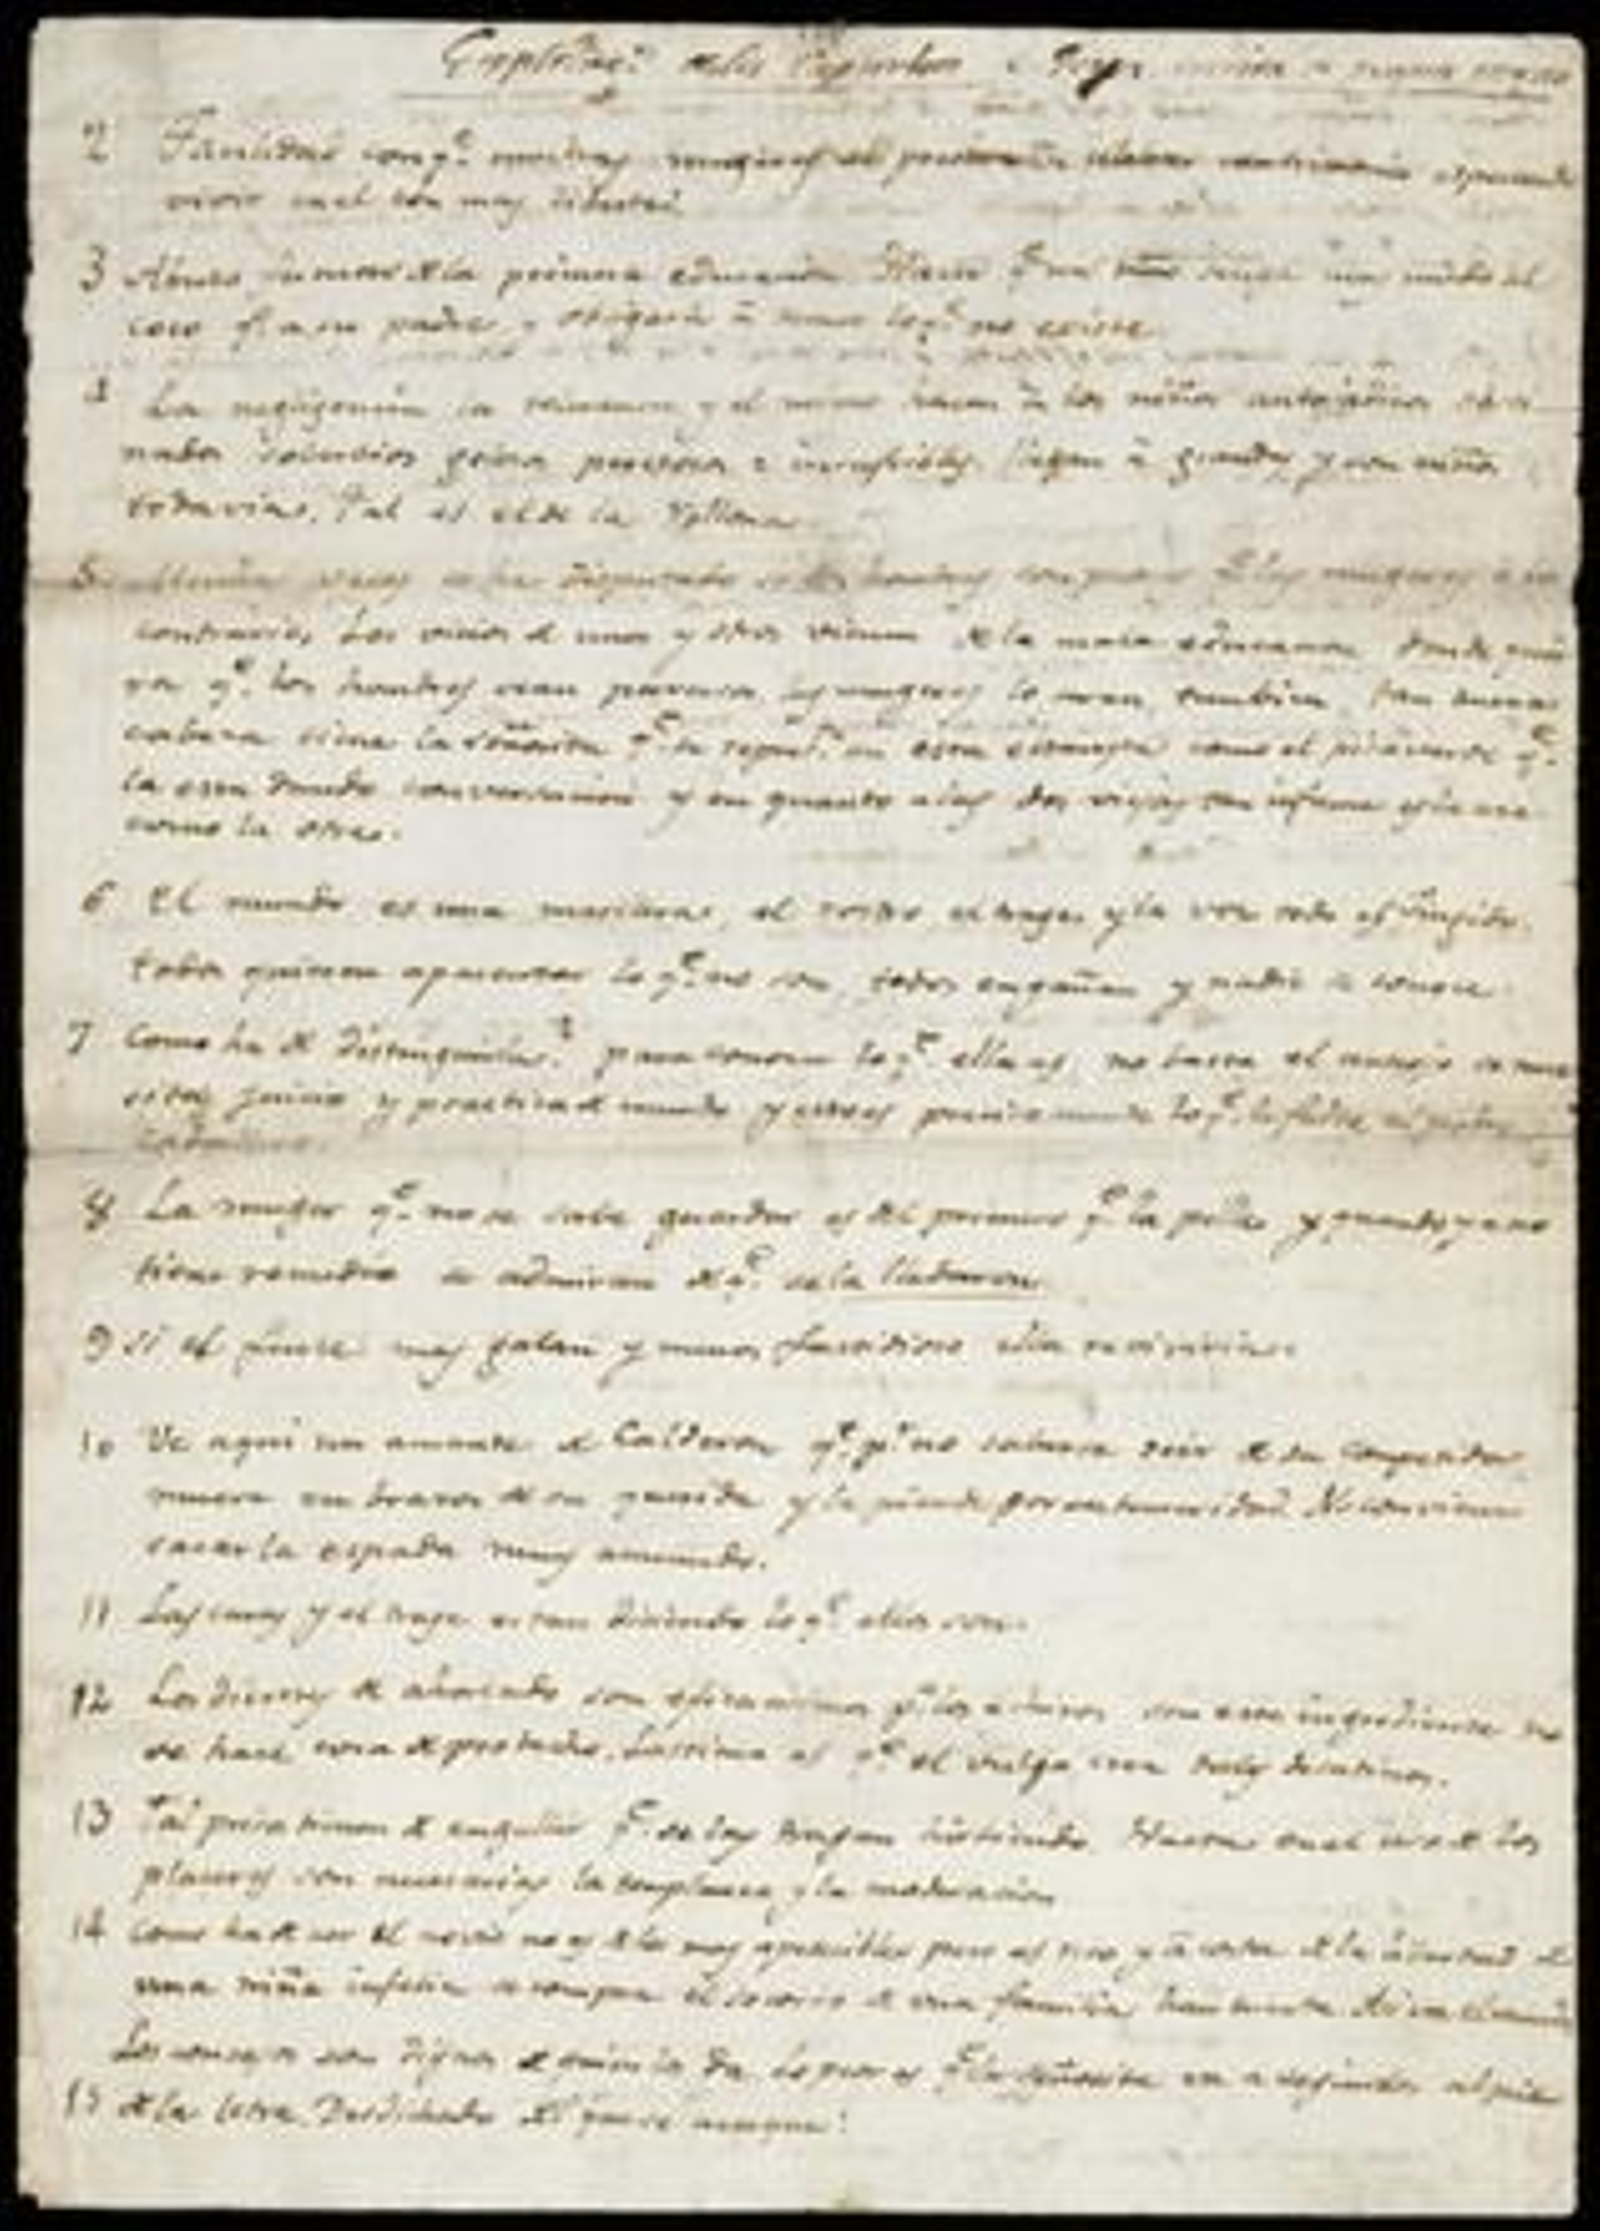 Explicacⁿ de los Caprichos de Goya escrita de propia mano
2 Facilidad con qᵉ muchas mugeres se prestan a celebrar matrimonio esperando
vivir en el con mas libertad.
3 Abuso funesto de la primera educación. Hacer qᵉ un niño tenga mas miedo al
coco qᵉ a su padre y obligarle à temer lo qᵉ no existe.
4 La negligencia la tolerancia y el mimo hacen à los niños antojadizos obsti
nados soberbios golosos perezosos e insufribles. Llegan à grandes y son niños
todavia. Tal es el de la Rollona.
5 Muchas veces se ha disputado si los hombres son peores qᵉ las mugeres o lo
contrario, los vicios de unos y otros vienen de la mala educacion donde quie
ra qᵉ los hombres sean perversos las mugeres lo seran tambien. Tan buena
cabeza tiene la señorita qᵉ se representa en esta estampa como el pisaverde qᵉ
la esta dando conversacion y en quanto a las dos viejas tan infame es la una
como la otra.
6 El mundo es una mascara, el rostro, el trage y la voz todo es fingido.
todos quieren aparentar lo qᵉ no son, todos engañan y nadie se conoce.
7 Como ha de distinguirla? para conocer lo qᵉ ella es no basta el anteojo se nece
sita juicio y practica de mundo y esto es precisamente lo qᵉ le falta al pobre
caballero.
8 La muger qᵉ no se sabe guardar es del primero qᵉ la pilla y quando ya no
tiene remedio se admiran de qᵉ se la llevaron.
9 Si el fuese mas galan y menos fastidioso ella reviviria.
10 Ve aqui un amante de Calderon qᵉ pʳ no saberse reir de su competidor
muere en brazos de su querida y la pierde por su temeridad. No conviene
sacar la espada muy amenudo.
11 Las caras y el trage estan diciendo lo qᵉ ellos son.
12 Los dientes de ahorcado son eficacisimos pᵃ los echizos sin este ingrediente no
se hace cosa de probecho. Lastima es qᵉ el vulgo crea tales desatinos.
13 Tal prisa tienen de engullir qᵉ se las tragan hirbiendo. Hasta en el uso de los
placeres son necesarias la templanza y la moderacion
14 Como ha de ser el novio no es de los mas apetecibles pero es rico y à costa de la libertad de
una niña infeliz se compra el socorro de una familia hambrienta. Asi va el mundo
Los consejos son dignos de quien los da. Lo peor es qᵉ la señorita va a seguirlos al pie
15 de la letra. Desdichado del qᵉ se acerque!